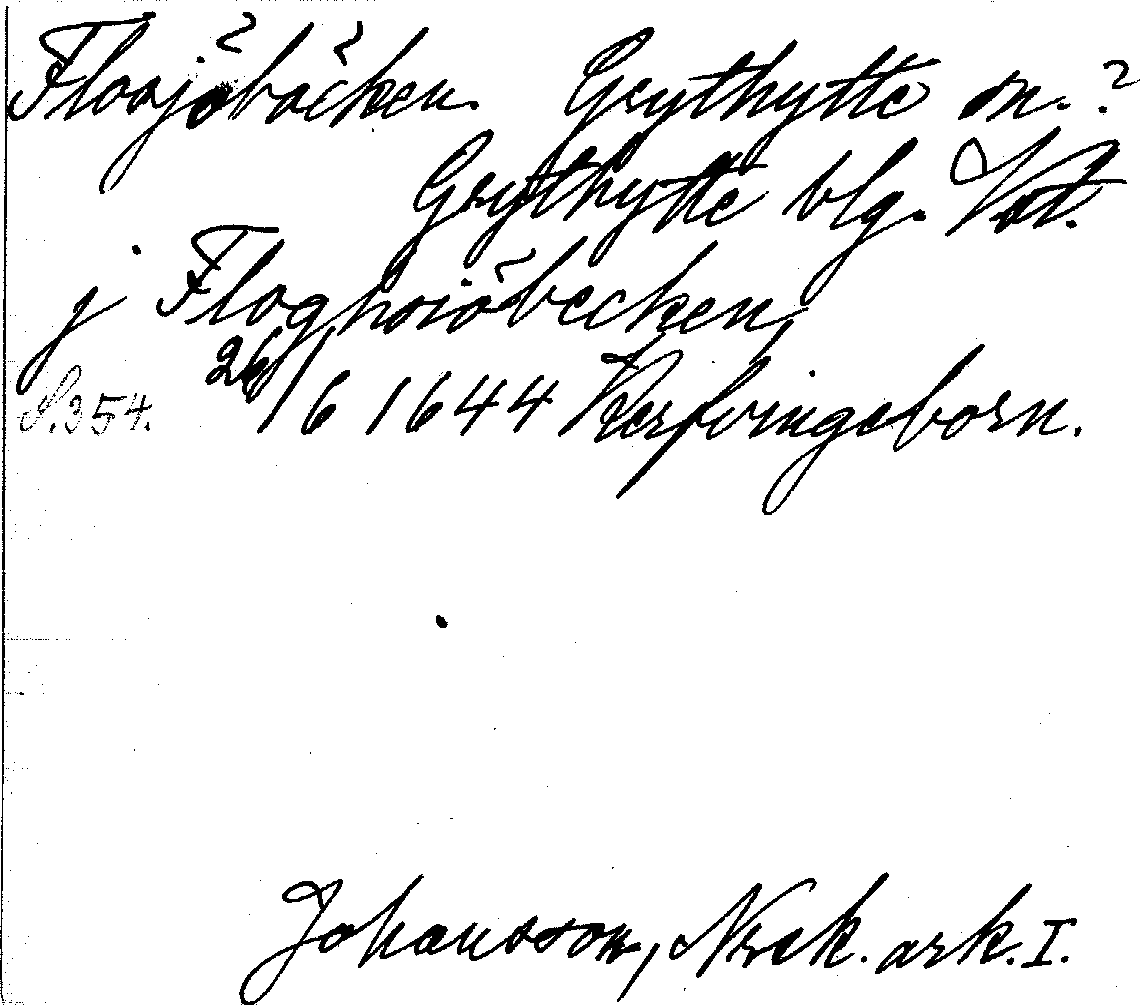 Flosjöbäcken. Grythytte sn.?
Grythytte blg. Vstml.
j Floghsiöbecken,
S.354. 26/6 1644 Kerfvingeborn.
Johansson, Norsk. ark. I.